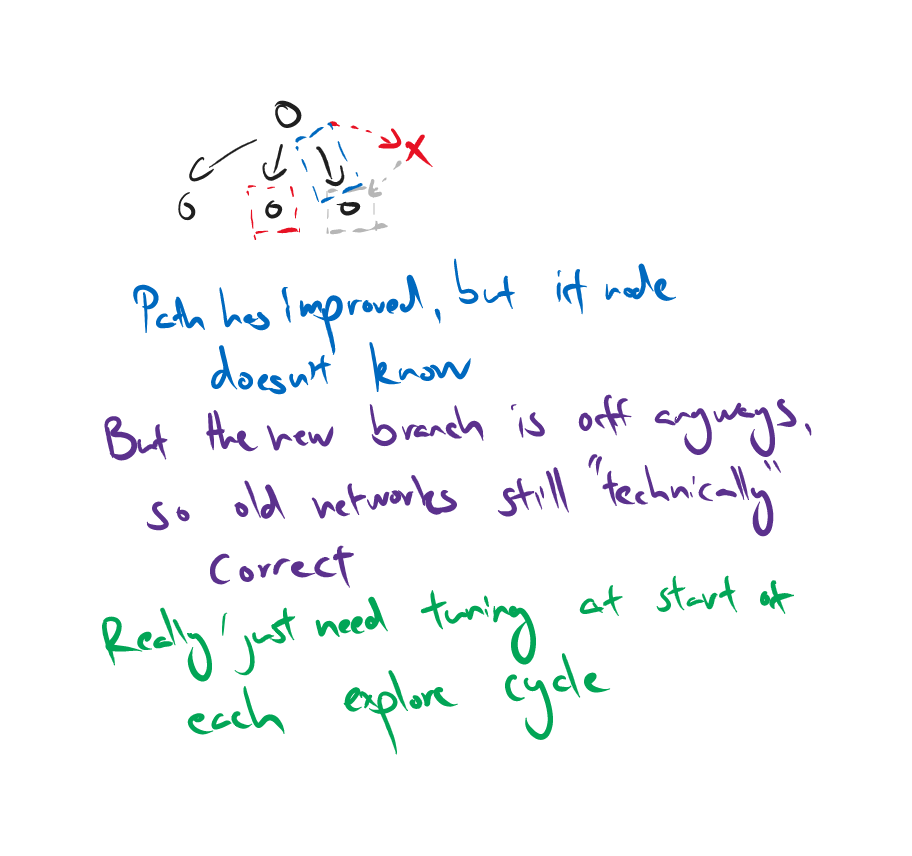 Path has improved, but irf node
doesn't know
But the new branch is off anyways,
so old networks still "technically"
correct
Really just need tuning at start of
each explore cycle